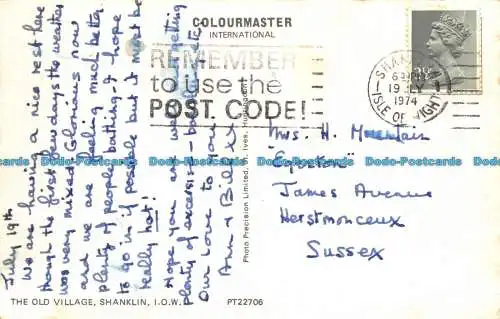 COLOURMASTER
INTERNATIONAL
REMEMBER
to use the
POST CODE!
SHANKLIN
19 JLY
1974
ISLE OF WIGHT
July 19th
We are having a nice rest here
though the first few days the weather
was very mixed. Glorious now
and we are feeling much better.
plenty of people bathing - I hope
to go in if possible but it must be
really hot!
Hope you are well & getting
plenty of excersise - bowls etc
Our love to you
Ann & Bill xx
Mrs. H.
James Avenue
Herstmonceux
Sussex
Photo Precision Limited, St. Ives, Huntingdon
THE OLD VILLAGE, SHANKLIN, I.O.W.
PT22706
Dodo-Postcards Dodo-Postcards Dodo-Postcards Dodo-Postcards Dodo-Postcards